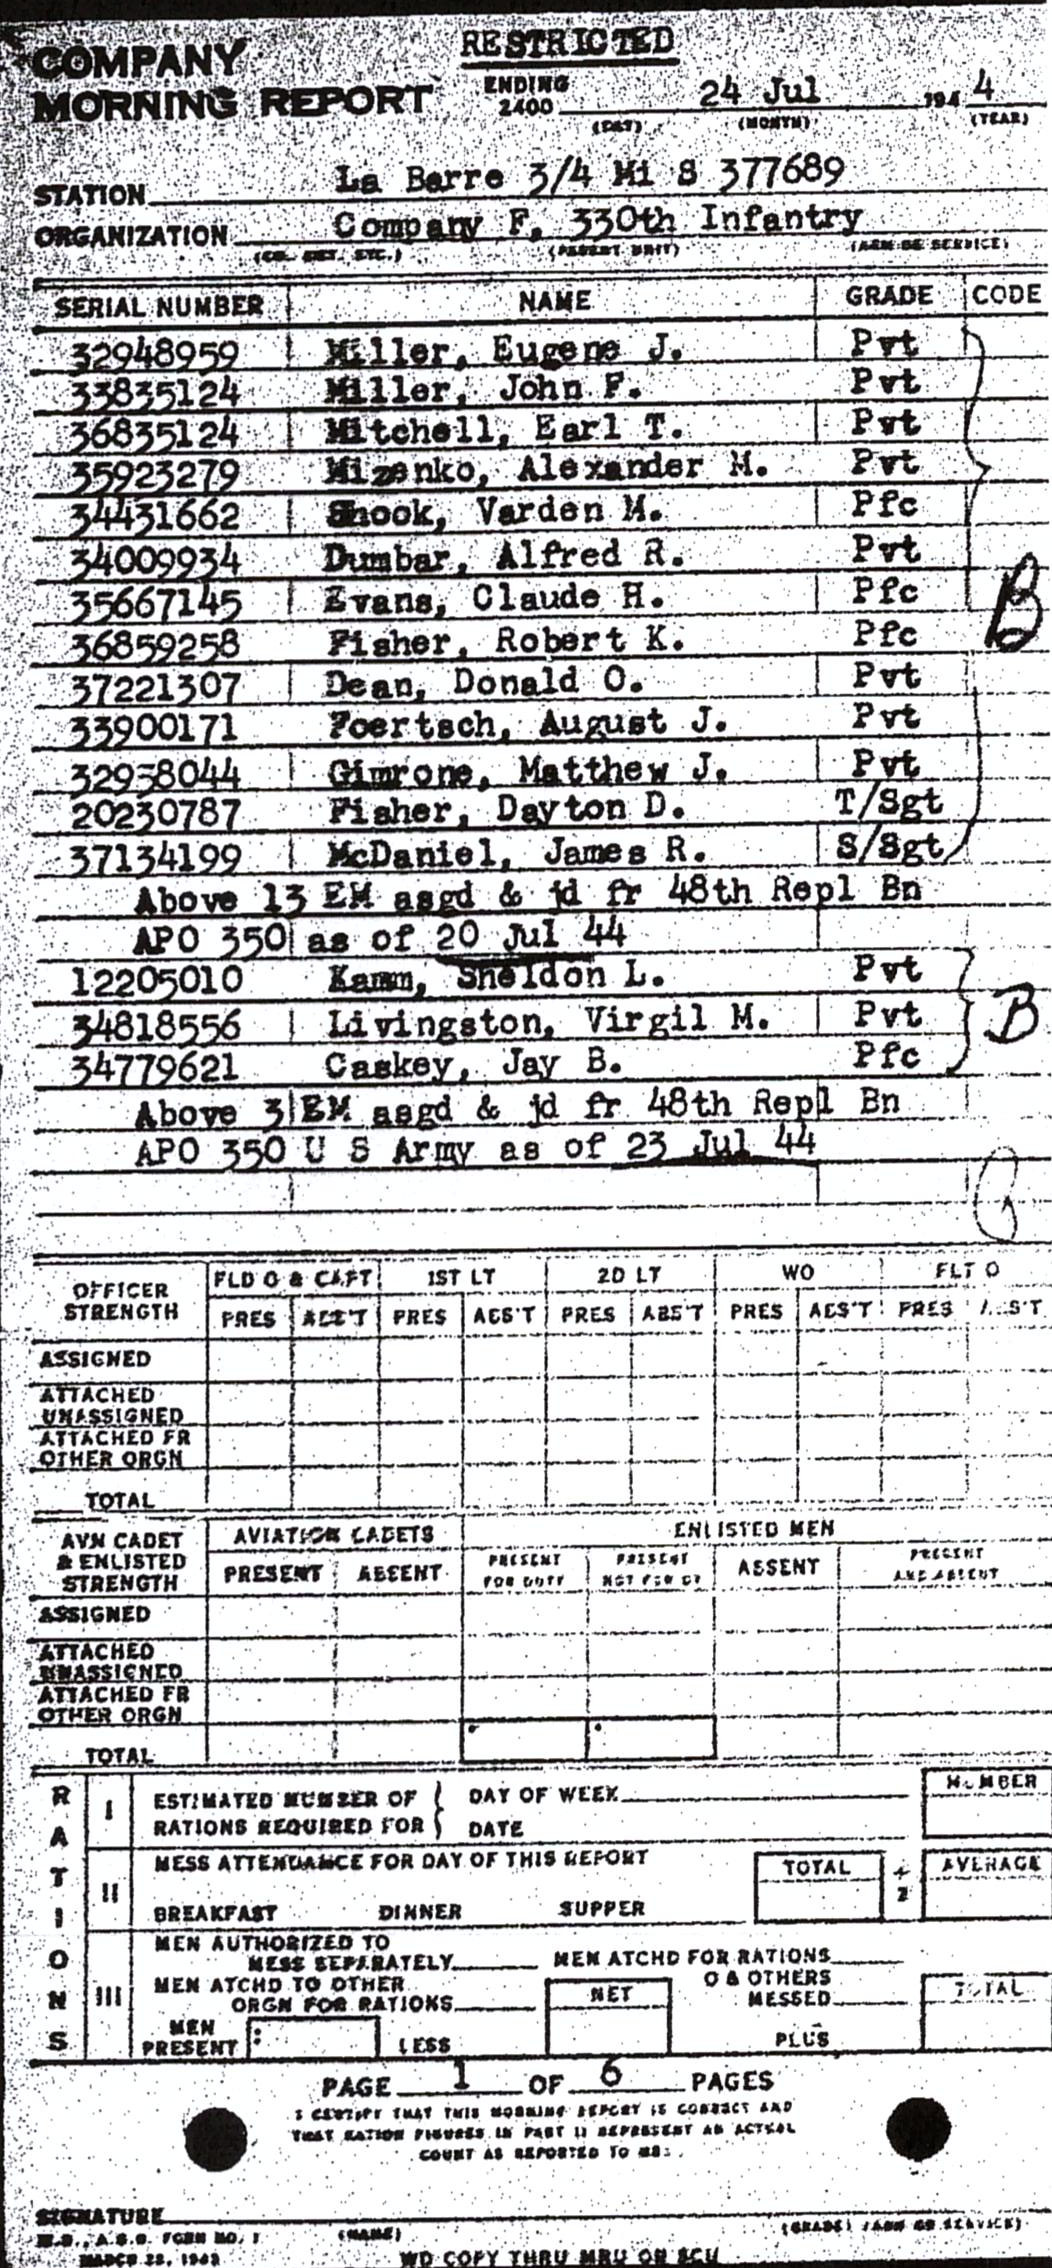 RESTRICTED
COMPANY
MORNING REPORT
ENDING
2400 24 Jul 194 4
(DAY) (MONTH) (YEAR)
STATION La Barre 3/4 Mi S 377689
ORGANIZATION Company F, 330th Infantry
(CO. DET. ETC.) (PARENT UNIT) (ARM OR SERVICE)
SERIAL NUMBER NAME GRADE CODE
32948959 Miller, Eugene J. Pvt
33835124 Miller, John F. Pvt
36835124 Mitchell, Earl T. Pvt
35923279 Mizenko, Alexander M. Pvt
34431662 Shook, Varden M. Pfc
34009934 Dumbar, Alfred R. Pvt
35667145 Evans, Claude H. Pfc
B
36859258 Fisher, Robert K. Pfc
37221307 Dean, Donald O. Pvt
33900171 Foertsch, August J. Pvt
32938044 Gimrone, Matthew J. Pvt
20230787 Fisher, Dayton D. T/Sgt
37134199 McDaniel, James R. S/Sgt
Above 13 EM asgd & jd fr 48th Repl Bn
APO 350 as of 20 Jul 44
12205010 Kamm, Sheldon L. Pvt
34818556 Livingston, Virgil M. Pvt B
34779621 Caskey, Jay B. Pfc
Above 3 EM asgd & jd fr 48th Repl Bn
APO 350 U S Army as of 23 Jul 44
OFFICER STRENGTH FLD O & CAPT 1ST LT 2D LT WO FLT O
PRES ABS'T PRES ABS'T PRES ABS'T PRES ABS'T PRES ABS'T
ASSIGNED
ATTACHED
UNASSIGNED
ATTACHED FR
OTHER ORGN
TOTAL
AVN CADET
& ENLISTED
STRENGTH
AVIATION CADETS ENLISTED MEN
PRESENT ABSENT PRESENT FOR DUTY PRESENT NOT FOR DY ABSENT PRESENT AND ABSENT
ASSIGNED
ATTACHED
UNASSIGNED
ATTACHED FR
OTHER ORGN
TOTAL
RATIONS
I ESTIMATED NUMBER OF DAY OF WEEK NUMBER
RATIONS REQUIRED FOR DATE
II MESS ATTENDANCE FOR DAY OF THIS REPORT TOTAL ÷ AVERAGE
BREAKFAST DINNER SUPPER
III MEN AUTHORIZED TO
MESS SEPARATELY MEN ATCHD FOR RATIONS
MEN ATCHD TO OTHER
ORGN FOR RATIONS NET O & OTHERS
MESSED TOTAL
MEN
PRESENT LESS PLUS
PAGE 1 OF 6 PAGES
I CERTIFY THAT THIS MORNING REPORT IS CORRECT AND
THAT RATION FIGURES IN PART II REPRESENT AN ACTUAL
COUNT AS REPORTED TO ME:
SIGNATURE
(NAME) (GRADE) (ARM OR SERVICE)
W.D., A.G.O. FORM NO. 1
MARCH 22, 1943
WD COPY THRU MRU OR SCU